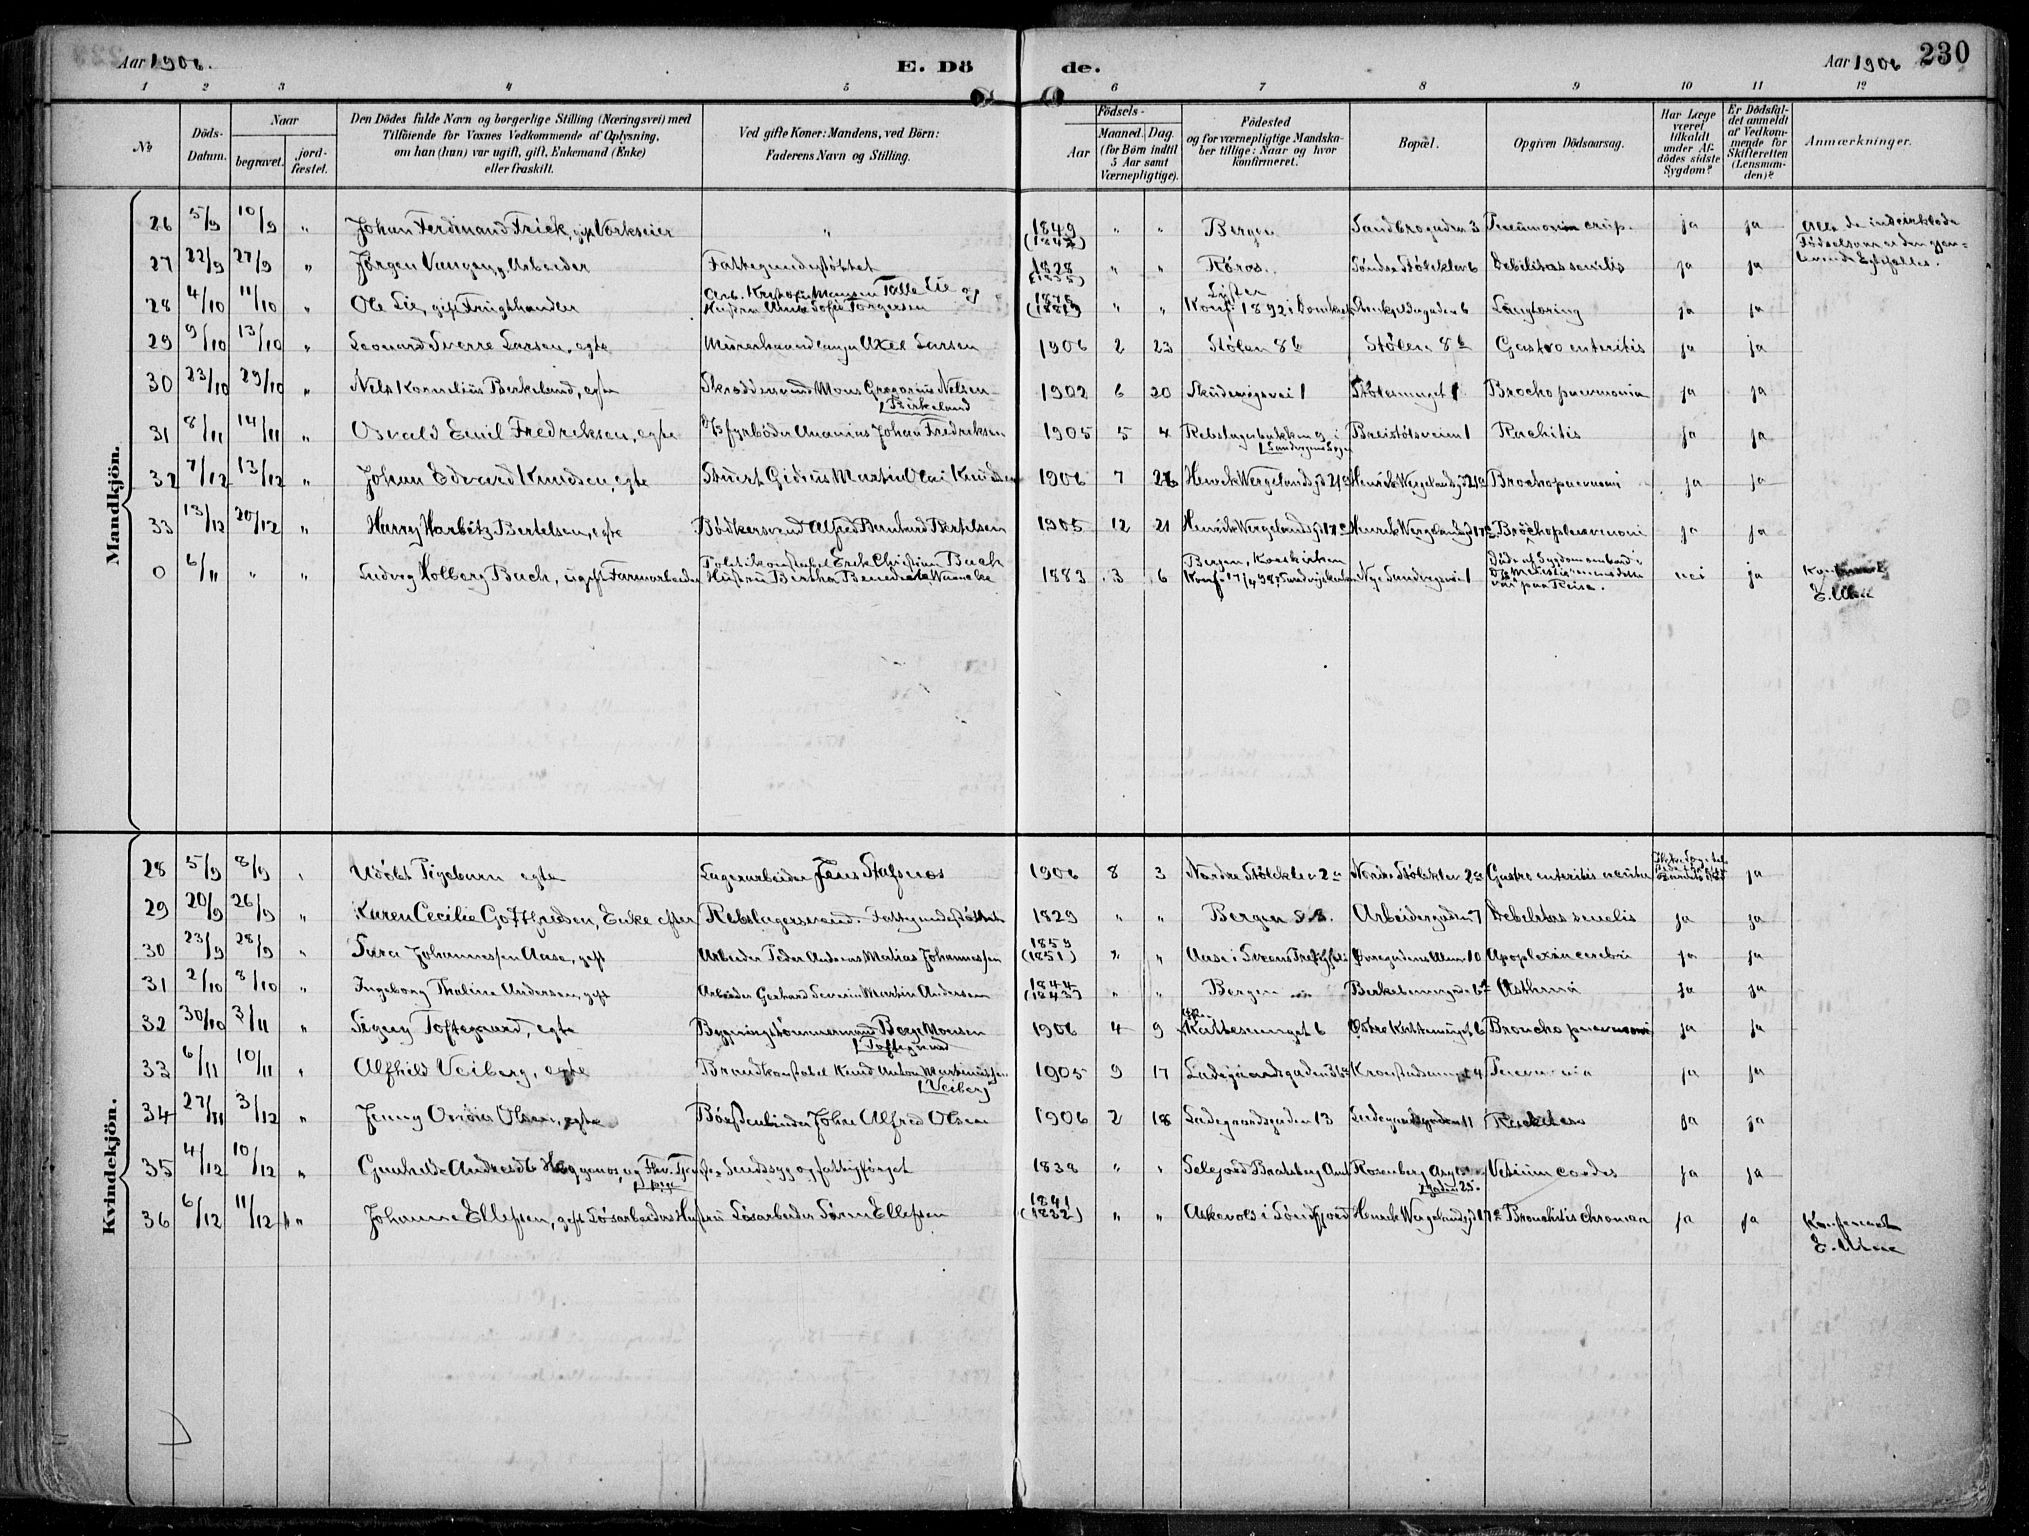 Aar 1906. E. Dö de. Aar 1906 230
1 2 3 4 5 6 7 8 9 10 11 12
No. Döds-Datum. Naar begravet. jord-fæstet.
Den Dödes fulde Navn og borgerlige Stilling (Næringsvei) med
Tilföiende for Voxnes Vedkommende af Oplysning,
om han (hun) var ugift, gift, Enkemand (Enke)
eller fraskilt.
Ved gifte Koner: Mandens, ved Börn:
Faderens Navn og Stilling.
Födsels-
Aar Maaned. Dag.
(for Börn indtil
5 Aar samt
Værnepligtige).
Födested
og for værnepligtige Mandska-
ber tillige: Naar og hvor
konfirmeret.
Bopæl.
Opgiven Dödsaarsag.
Har Læge
været
tilkaldt
under Af-
dödes sidste
Sygdom?
Er Dödsfal-
det anmeldt
af Vedkom-
mende for
Skifteretten
(Lensman-
den)?
Anmærkninger.
Mandkjön.
26 5/9 10/9 " Johan Ferdinand Frick, gift Værkseier " 1849 (1847) " " Bergen Sandbrogaden 3 Pneumonia crup. ja ja Alle de indcirklede
Födselsaar er den gjen-
levende Egtefælles.
27 22/9 27/9 " Jørgen Vangen, Arbeider Fattigunderstøttet 1828 " " Röros. Søndre Stöleklev 6 Debilitas senilis ja ja
28 4/10 11/10 " Ole Lie, gift Frugthandler Arb. Kristofer Monsen Talle Lie og
Hustru Anne Sofie Torgersen " " Lyster
Konf. 1892 i Domkirk. 6 Lungtæring ja ja
29 9/10 13/10 " Leonard Sverre Larsen, egte Murerhaandlanger Axel Larsen 1906 2 23 Stölen 8 b Stölen 8 b Gastro enteritis ja ja
30 23/10 29/10 " Nels Kornelius Birkeland, egte Skræddersvend Mons Gregorius Nelsen
Birkeland 1902 6 20 Skudevigsvei 1 Stölesmuget 1 Brocho pneumonia ja ja
31 8/11 14/11 " Osvald Emil Fredriksen, egte D/S fyrböder Ananias Johan Fredriksen 1905 5 4 Rebslagerbakken 9 i
Sandvigens Sogn Breistölsveien 1 Rachitis ja ja
32 7/12 13/12 " Johan Edvard Knudsen, egte Stuert Gidius Martin Olai Knudsen 1906 7 26 Henrik Wergelands gd 21 a Henrik Wergelands gd 21 a Brochopneumoni ja ja
33 13/12 20/12 " Harry Harbitz Bertelsen, egte Bödkersvend Alfred Bernhard Bertelsen 1905 12 21 Henrik Wergelands gd 17 c Henrik Wergelands gd 17 c Bröchopleuvmoni ja ja
0 6/11 " " Ludvig Holberg Buch, ugift Farmarbeider Politikonstabel Erik Christian Buch
Hustru Birtha Benedikte Wancke 1883 3 6 Bergen, Korskirken
Konf. Sandvigskirken Nye Sandvigsvei 1 Döde af Sygdom ombord i
D/S mens dette
var paa Reise. nei ja
Kvindekjön.
28 5/9 8/9 " egte Lagerarbeider Jens Stafsnæs 1906 8 3 Nordre Stöleklev 2 a Nordre Stöleklev 2 a Gastro enteritis acuta ja
29 20/9 26/9 " Karen Cecilie Gottfridsen, Enke efter Rebslagersvend. Fattigunderstöttet 1829 " " Bergen Arbeidergaden 7 Debilitas senilis ja ja
30 23/9 28/9 " Sara Johannessen Aase, gift Arbeider Peder Andreas Matias Johannessen 1859 (1851) " " Aase i Øvregadens Alm. 10 Apoplexia cerebri ja ja
31 2/10 8/10 " Ingeborg Thaline Andersen, gift Arbeider Gerhard Severin Martin Andersen 1844 (1843) " " Bergen Birkebeinergaden 6 Asthma ja ja
32 30/10 3/11 " Signy Toftegaard, egte Bygningstömmermand Börge Monsen
Toftegaard 1906 4 9 Kattesmuget 6 Østre Kattesmuget 6 Broncho pneumoni ja ja
33 6/11 10/11 " Alfhild Veiberg, egte Brandkonstabel Knud Anton Martinussen
Veiberg 1905 9 17 Ladegaardsgaden 36 14 Pneumonia ja ja
34 27/11 3/12 " Jenny Olsen, egte Börstenbinder Johan Alfred Olsen 1906 2 18 Ladegaardsgaden 13 Ladegaardsgaden 11 Rachitis ja ja
35 4/12 10/12 " Gunhild Andresdt. Sindssyg og fattigforsørget 1838 " " Selejord Bratsberg Amt Rosenberg Asyl
gaden 25. Vitium cordis ja ja
36 6/12 11/12 " Johanne Ellefsen, gift Løsarbeiders Hustru Løsarbeider Sören Ellefsen 1841 (1832) " " Askevold i Söndfjord Henrik Wergelands gd 17 a Bronchitis chronica ja ja Konfereret